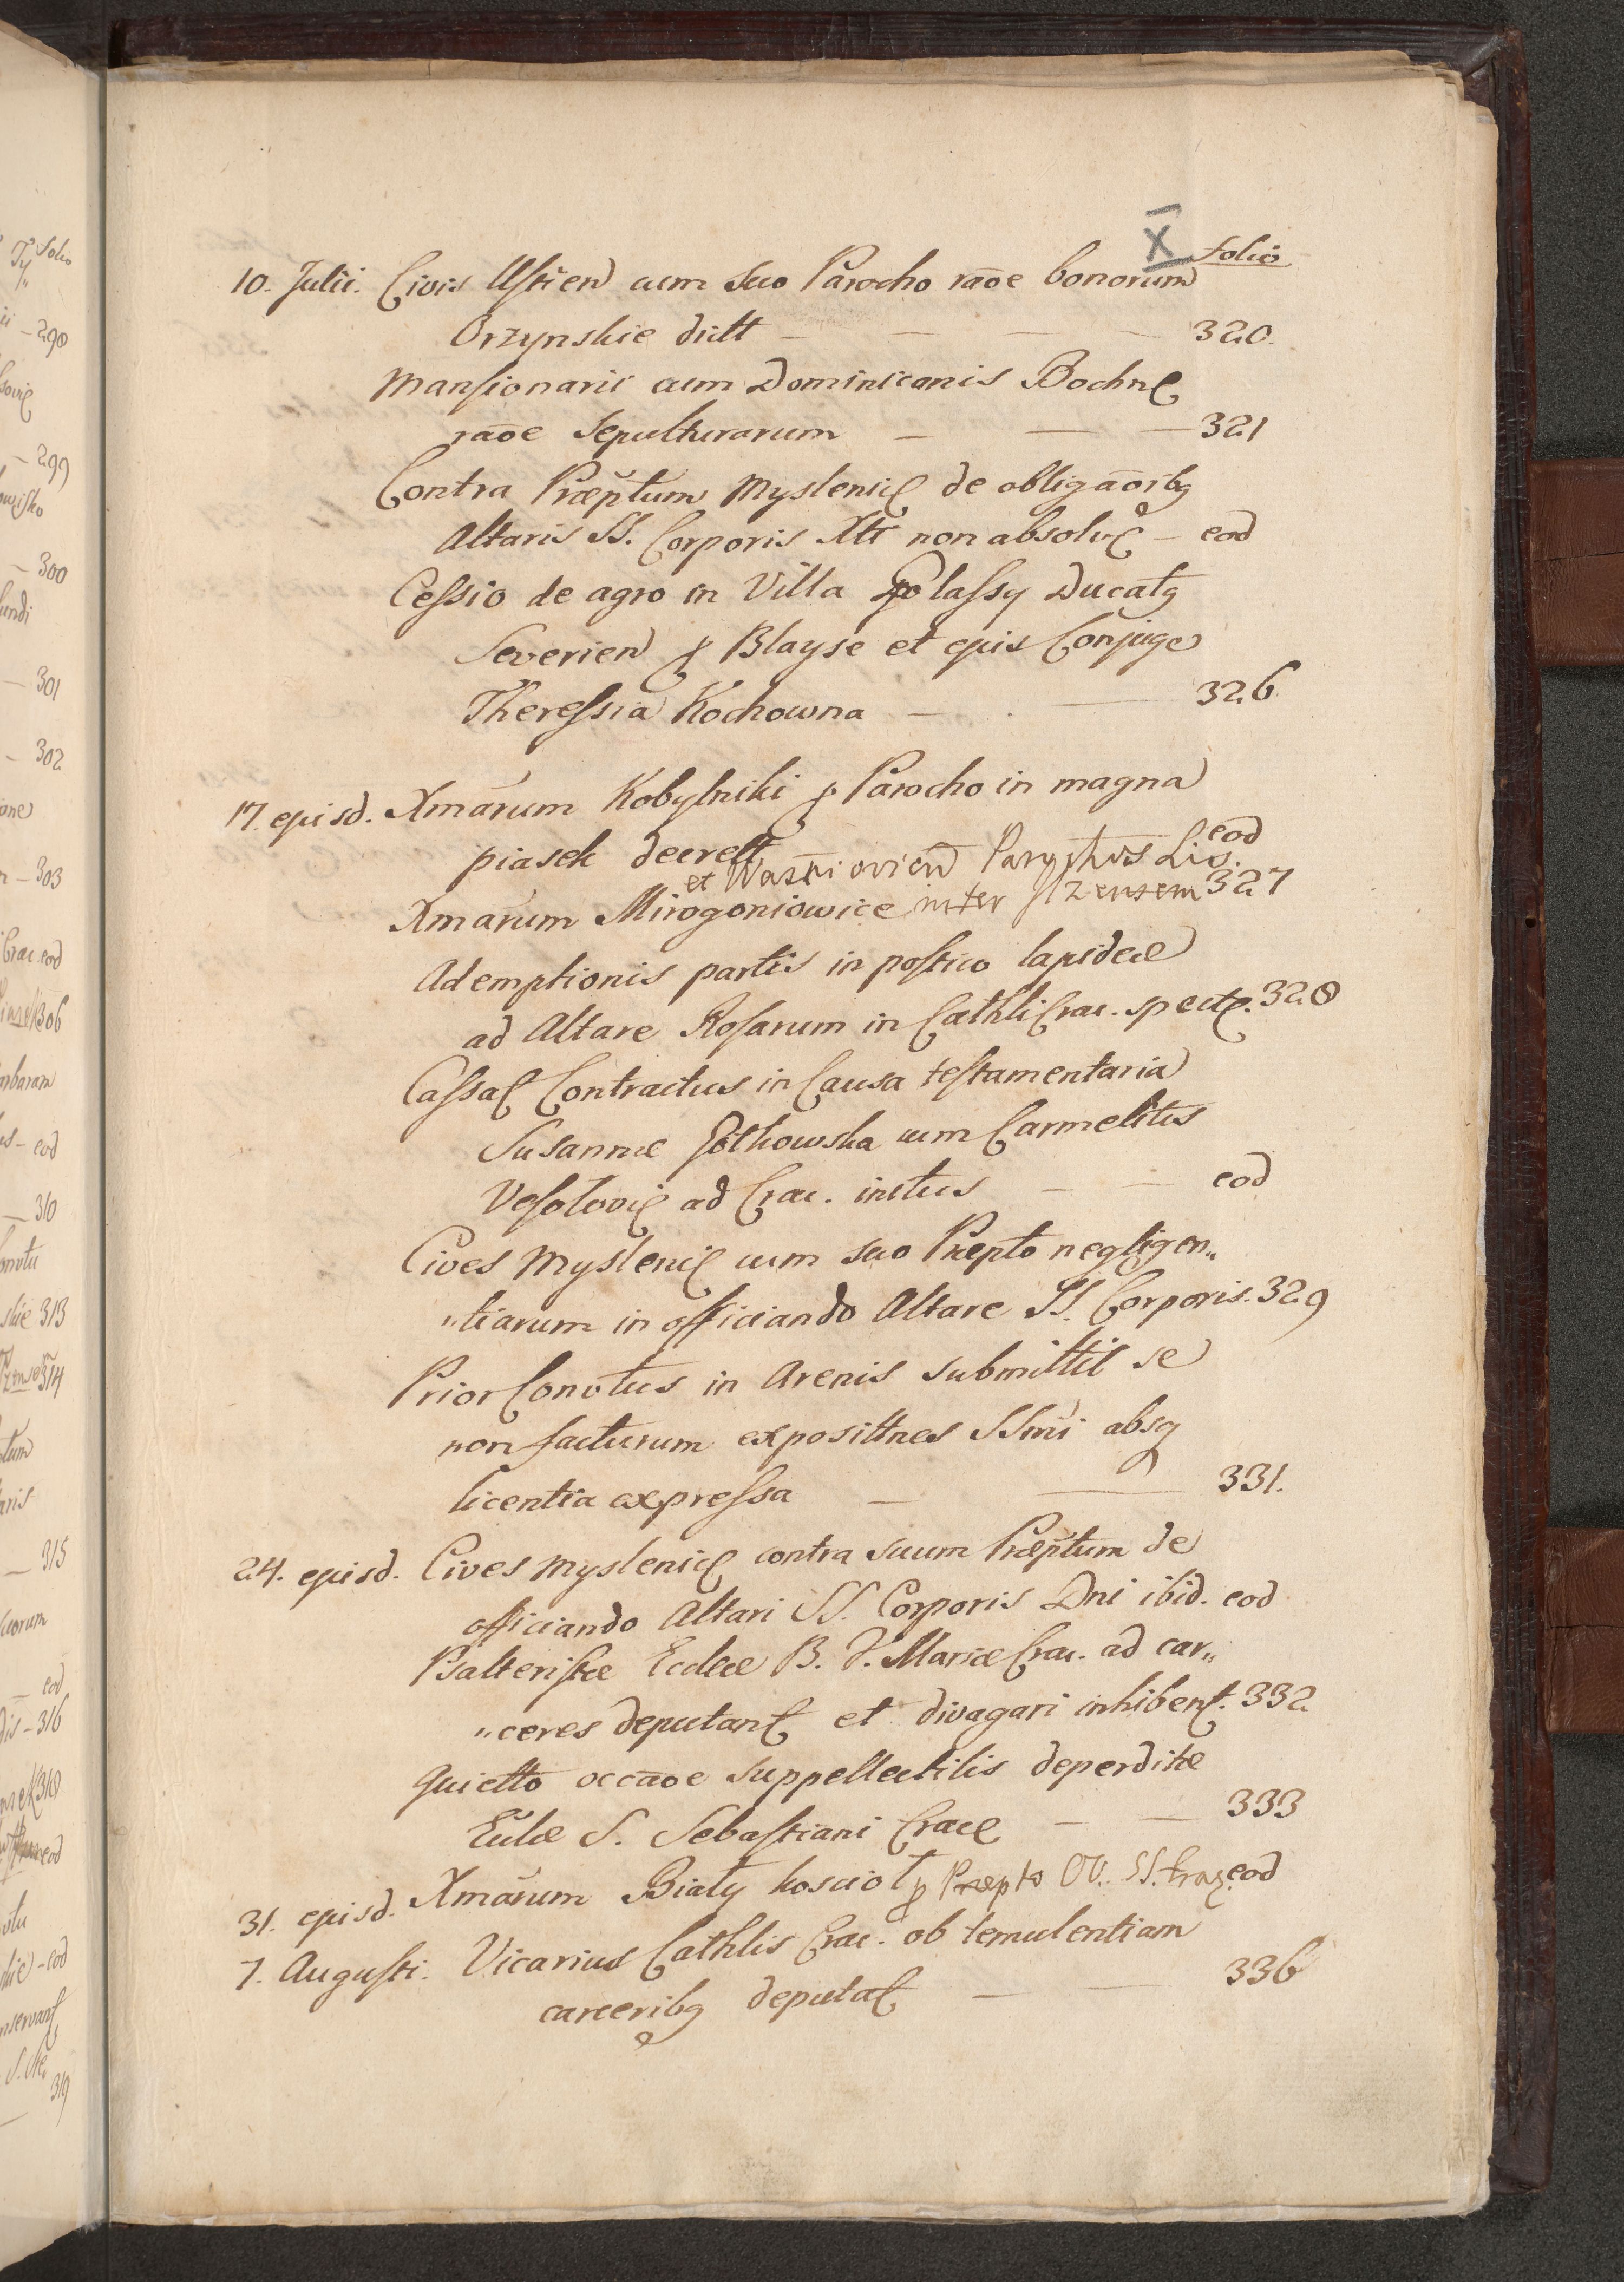 X folio
10. Julii. Civis Ustien cum suo Parocho raōe bonorum
Brzynskie dictt — — — 320.
Mansionarii cum Dominicanis Bochn
raōe sepulturarum — — — 321
Contra Præptum Myslenic de obligaōribq
Altaris SS. Corporis Xti non absolut — eod
Cessio de agro in Villa Golassy Ducatq
Severien p Blayse et ejus Conjuge
Theressia Kochowna — — 326
17. ejusd. Xmarum Kobylniki p Parocho in magna
piasek decrett eod
et Parochos
Xmarum Mirogoniowice inter 327
Ademptionis partis in postico lapideæ
ad Altare Rosarum in Cathli Crac. spectt. 328
Cassat Contractus in Causa testamentaria
Susannæ Golkowska cum Carmelitis
Vesolovic ad Crac. initus — — eod
Cives Myslenic cum suo Præpto negligen„
„tiarum in officiando Altare SS. Corporis. 329
Prior Convtus in Arenis submittit se
non facturum exposittnes SSmi absq
licentia expressa — — 331.
24. ejusd. Cives Myslenic contra suum Præptum de
officiando Altari SS. Corporis Dni ibid. eod
Psalteristæ Ecclæ B. V. Mariæ Crac. ad car„
„ceres deputant et divagari inhibent. 332
Quiettō occāoe suppellectilis deperditæ
Eccliæ S. Sebastiani Crac — — 333
31. ejusd. Xmarum Biały koscioł p Præpto OO. SS. Crac. eod
7. Augusti. Vicarius Cathlis Crac. ob temulentiam
carceribq deputat — — 336